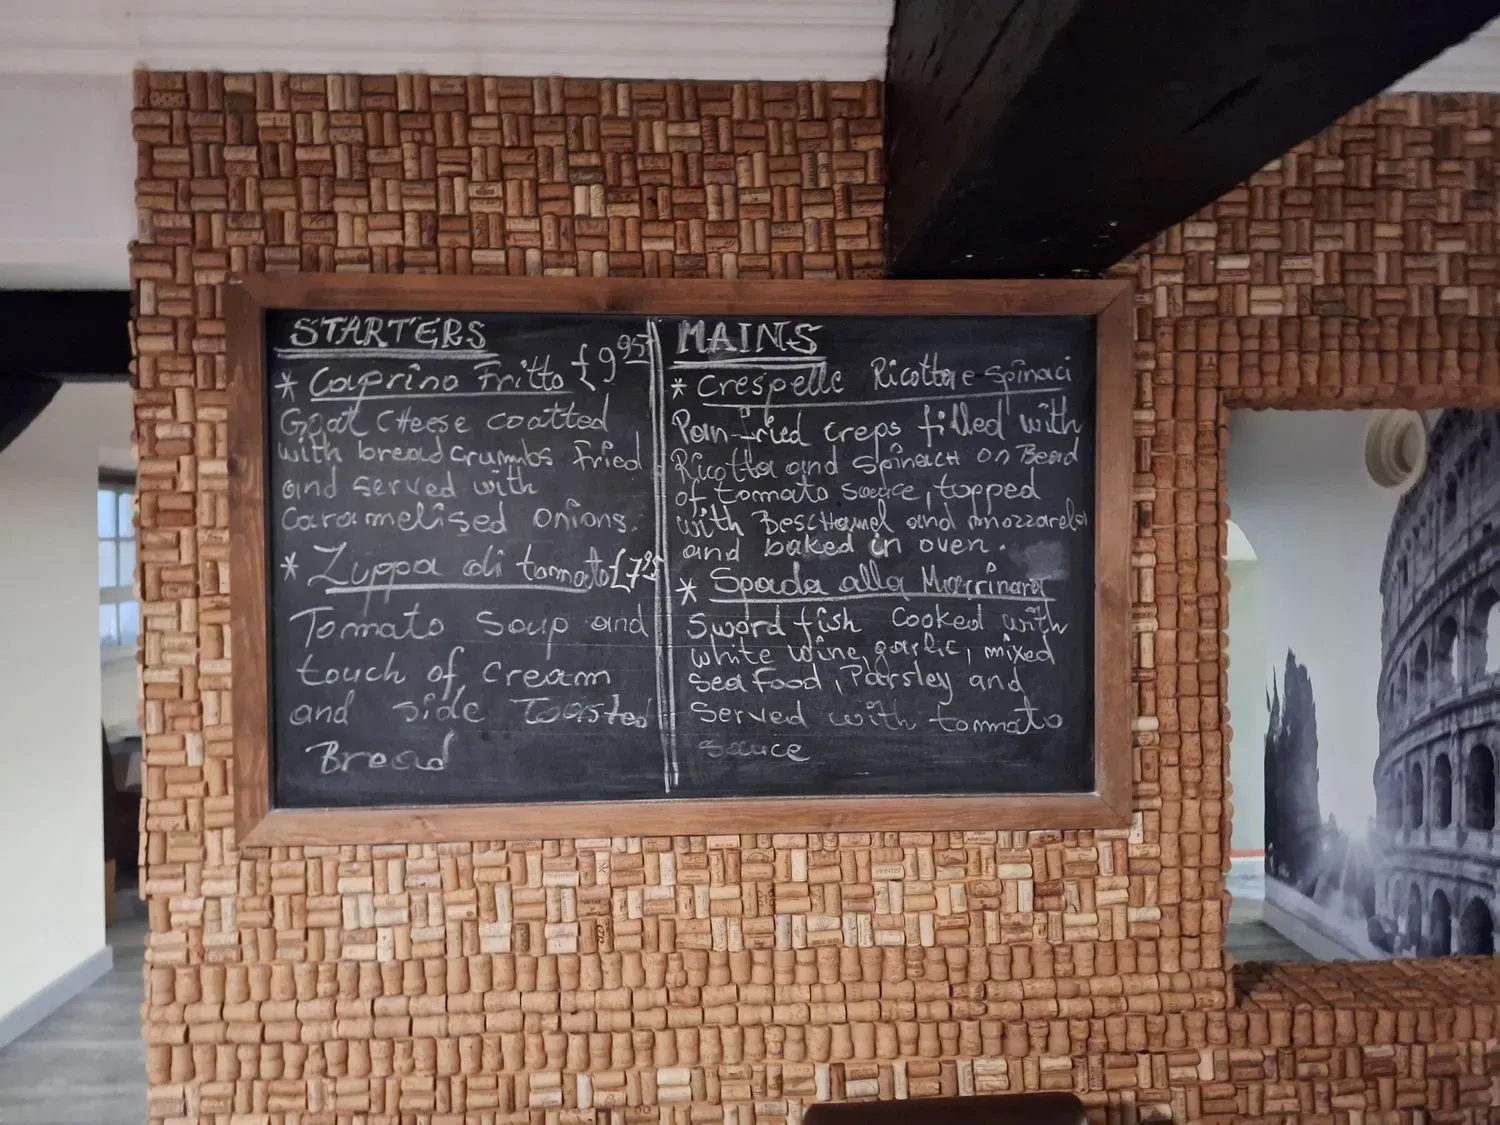 STARTERS
* Caprino Fritto £9.95
Goat CHeese coatted
with bread crumbs Fried
and served with
caramelised onions.
* Zuppa di tomato £7.95
Tomato Soup and
touch of Cream
and side Toasted
Bread
MAINS
* Crespelle Ricotta e Spinaci
Pan-fried creps filled with
Ricotta and SpinacH on Bead
of tomato sauce, topped
with BescHamel and mozzarela
and baked in oven.
* Spada alla Marrinara
Sword fish Cooked with
white wine, garlic, mixed
Sea food, Parsley and
Served with tommato
sauce